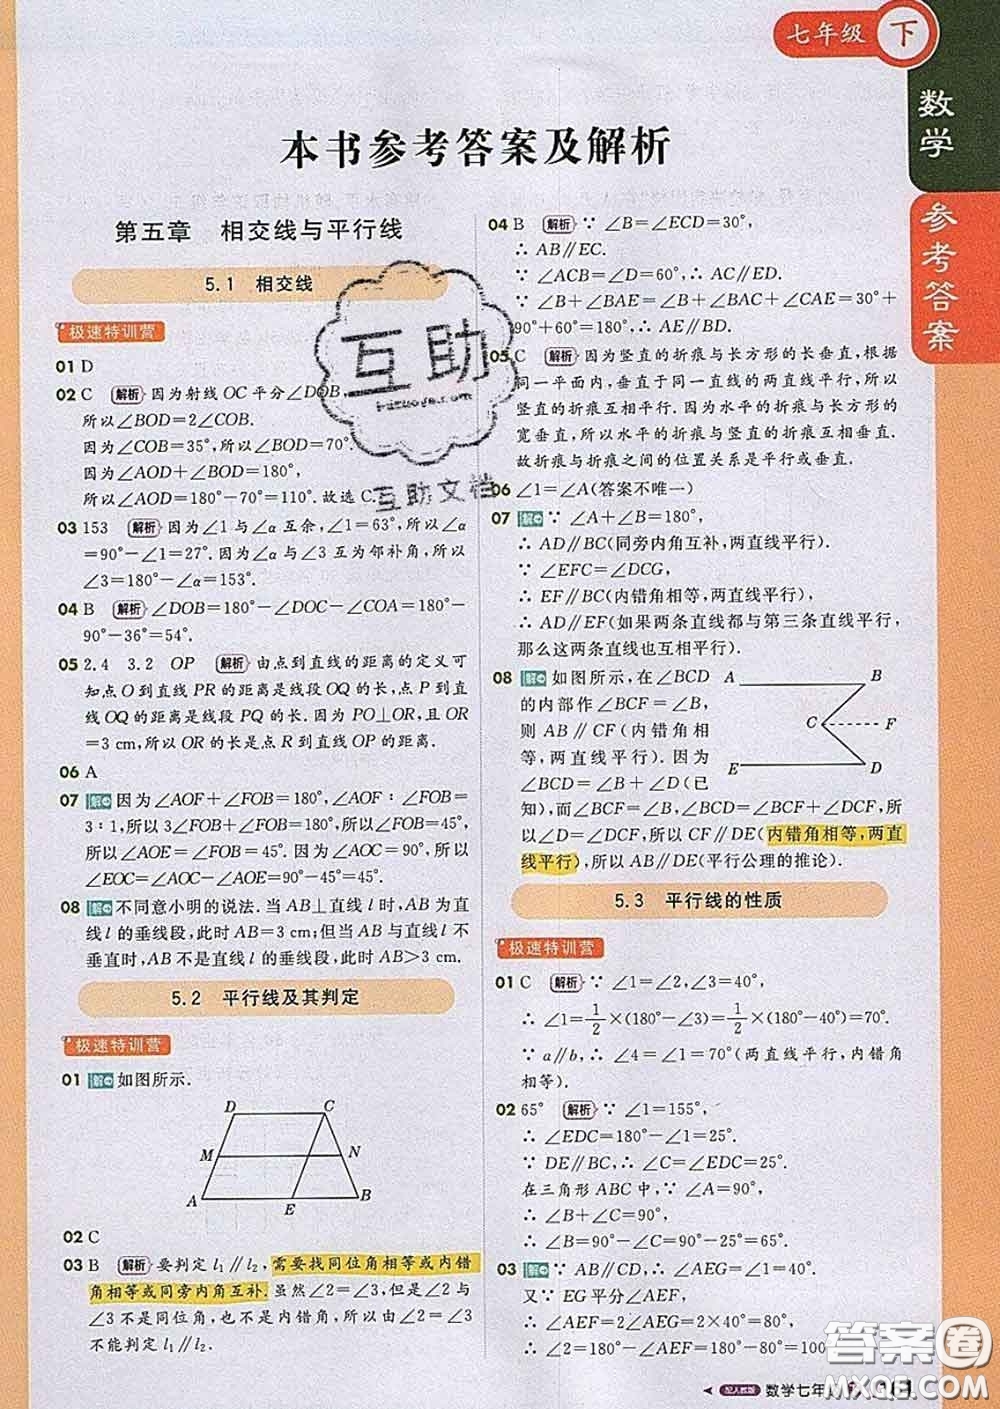 七年级 下
数学
参考答案
本书参考答案及解析
第五章 相交线与平行线
5.1 相交线
极速特训营
01 D
02 C 解析 因为射线OC平分∠DOB,
所以∠BOD=2∠COB.
因为∠COB=35°,所以∠BOD=70°.
因为∠AOD+∠BOD=180°,
所以∠AOD=180°-70°=110°.故选C.
03 153 解析 因为∠1与∠α互余,∠1=63°,所以∠α
=90°-∠1=27°.因为∠α与∠3互为邻补角,所以
∠3=180°-∠α=153°.
04 B 解析 ∠DOB=180°-∠DOC-∠COA=180°-
90°-36°=54°.
05 2.4 3.2 OP 解析 由点到直线的距离的定义可
知点O到直线PR的距离是线段OQ的长,点P到直
线OQ的距离是线段PQ的长.因为PO⊥OR,且OR
=3 cm,所以OR的长是点R到直线OP的距离.
06 A
07 解 因为∠AOF+∠FOB=180°,∠AOF∶∠FOB=
3∶1,所以3∠FOB+∠FOB=180°,所以∠FOB=45°,
所以∠AOE=∠FOB=45°.因为∠AOC=90°,所以
∠EOC=∠AOC-∠AOE=90°-45°=45°.
08 解 不同意小明的说法.当AB⊥直线l时,AB为直
线l的垂线段,此时AB=3 cm;但当AB与直线l不
垂直时,AB不是直线l的垂线段,此时AB>3 cm.
5.2 平行线及其判定
极速特训营
01 解 如图所示.
D C
M N
A E B
02 C
03 B 解析 要判定l₁∥l₂,需要找同位角相等或内错
角相等或同旁内角互补.虽然∠2=∠3,但是∠2与
∠3不是同位角,也不是内错角,所以由∠2=∠3
不能判定l₁∥l₂.
04 B 解析 ∵∠B=∠ECD=30°,
∴AB∥EC.
∵∠ACB=∠D=60°,∴AC∥ED.
∵∠B+∠BAE=∠B+∠BAC+∠CAE=30°+
90°+60°=180°,∴AE∥BD.
05 C 解析 因为竖直的折痕与长方形的长垂直,根据
同一平面内,垂直于同一直线的两直线平行,所以
竖直的折痕互相平行.因为水平的折痕与长方形的
宽垂直,所以水平的折痕与竖直的折痕互相垂直.
故折痕与折痕之间的位置关系是平行或垂直.
06 ∠1=∠A(答案不唯一)
07 解 ∵∠A+∠B=180°,
∴AD∥BC(同旁内角互补,两直线平行).
∵∠EFC=∠DCG,
∴EF∥BC(内错角相等,两直线平行).
∴AD∥EF(如果两条直线都与第三条直线平行,
那么这两条直线也互相平行).
08 解 如图所示,在∠BCD
的内部作∠BCF=∠B,
则AB∥CF(内错角相
等,两直线平行).因为
∠BCD=∠B+∠D(已
知),而∠BCF=∠B,∠BCD=∠BCF+∠DCF,所
以∠D=∠DCF,所以CF∥DE(内错角相等,两直
线平行),所以AB∥DE(平行公理的推论).
A B
C F
E D
5.3 平行线的性质
极速特训营
01 C 解析 ∵∠1=∠2,∠3=40°,
∴∠1=1/2×(180°-∠3)=1/2×(180°-40°)=70°.
∵a∥b,∴∠4=∠1=70°(两直线平行,内错角
相等).
02 65° 解析 ∵∠1=155°,
∴∠EDC=180°-∠1=25°.
∵DE∥BC,∴∠C=∠EDC=25°.
在三角形ABC中,∵∠A=90°,
∴∠B+∠C=90°,
∴∠B=90°-∠C=90°-25°=65°.
03 解 ∵AB∥CD,∴∠AEG=∠1=40°.
又∵EG平分∠AEF,
∴∠AEF=2∠AEG=2×40°=80°,
∴∠2=180°-∠AEF=180°-80°=100
配人教版 数学七年
互助
互助文档
答案圈